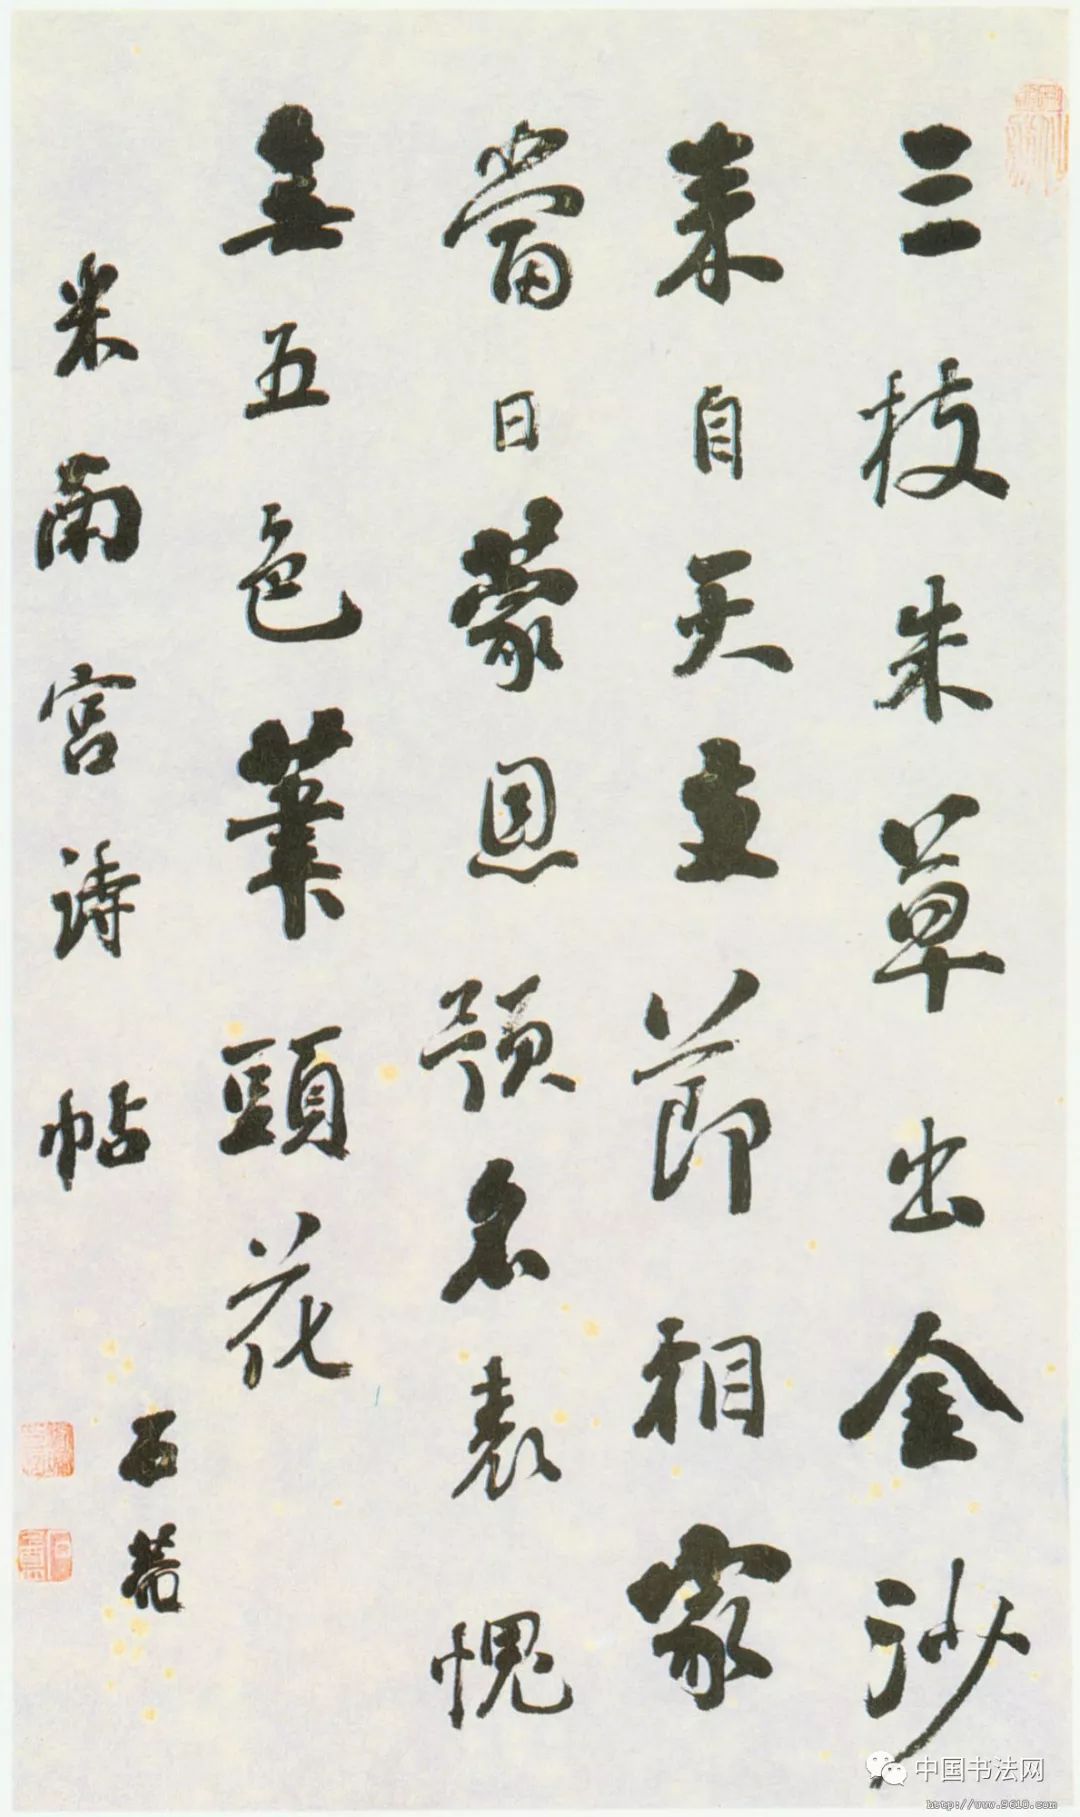 三枝朱草出金沙
来自天節相家
當日蒙恩預名表愧
無五色筆頭花
米南宫詩帖
石菴
中国书法网
http://www.9610.com